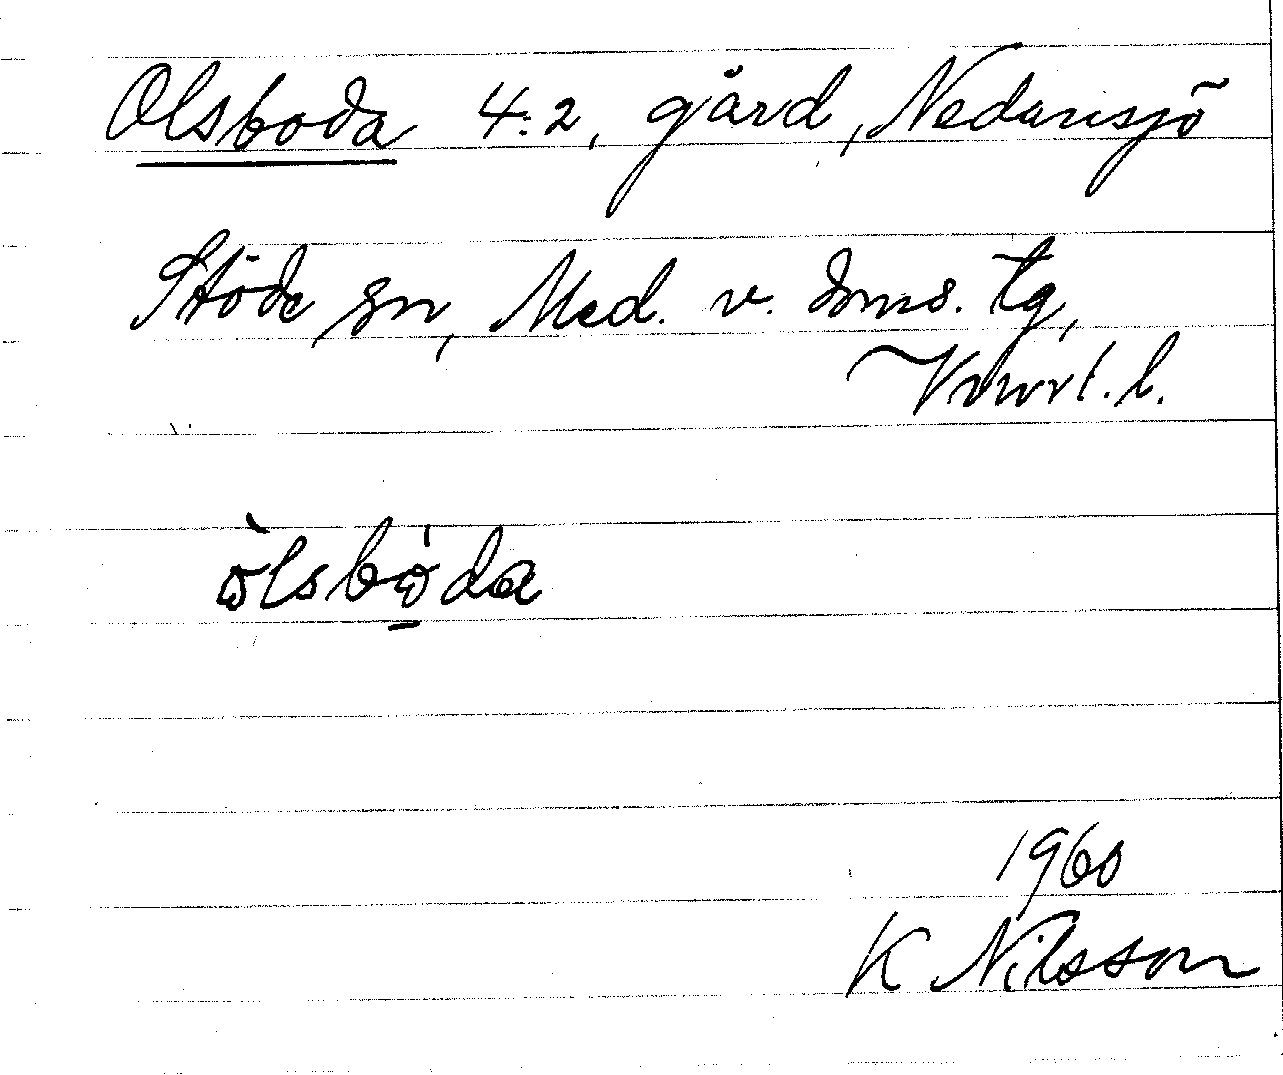 Olsboda 4:2, gård, Nedansjö
Stöde sn, Med. v. dms. tg,
Vnorrl. l.
òlsbo̲̍da
1960
K Nilsson